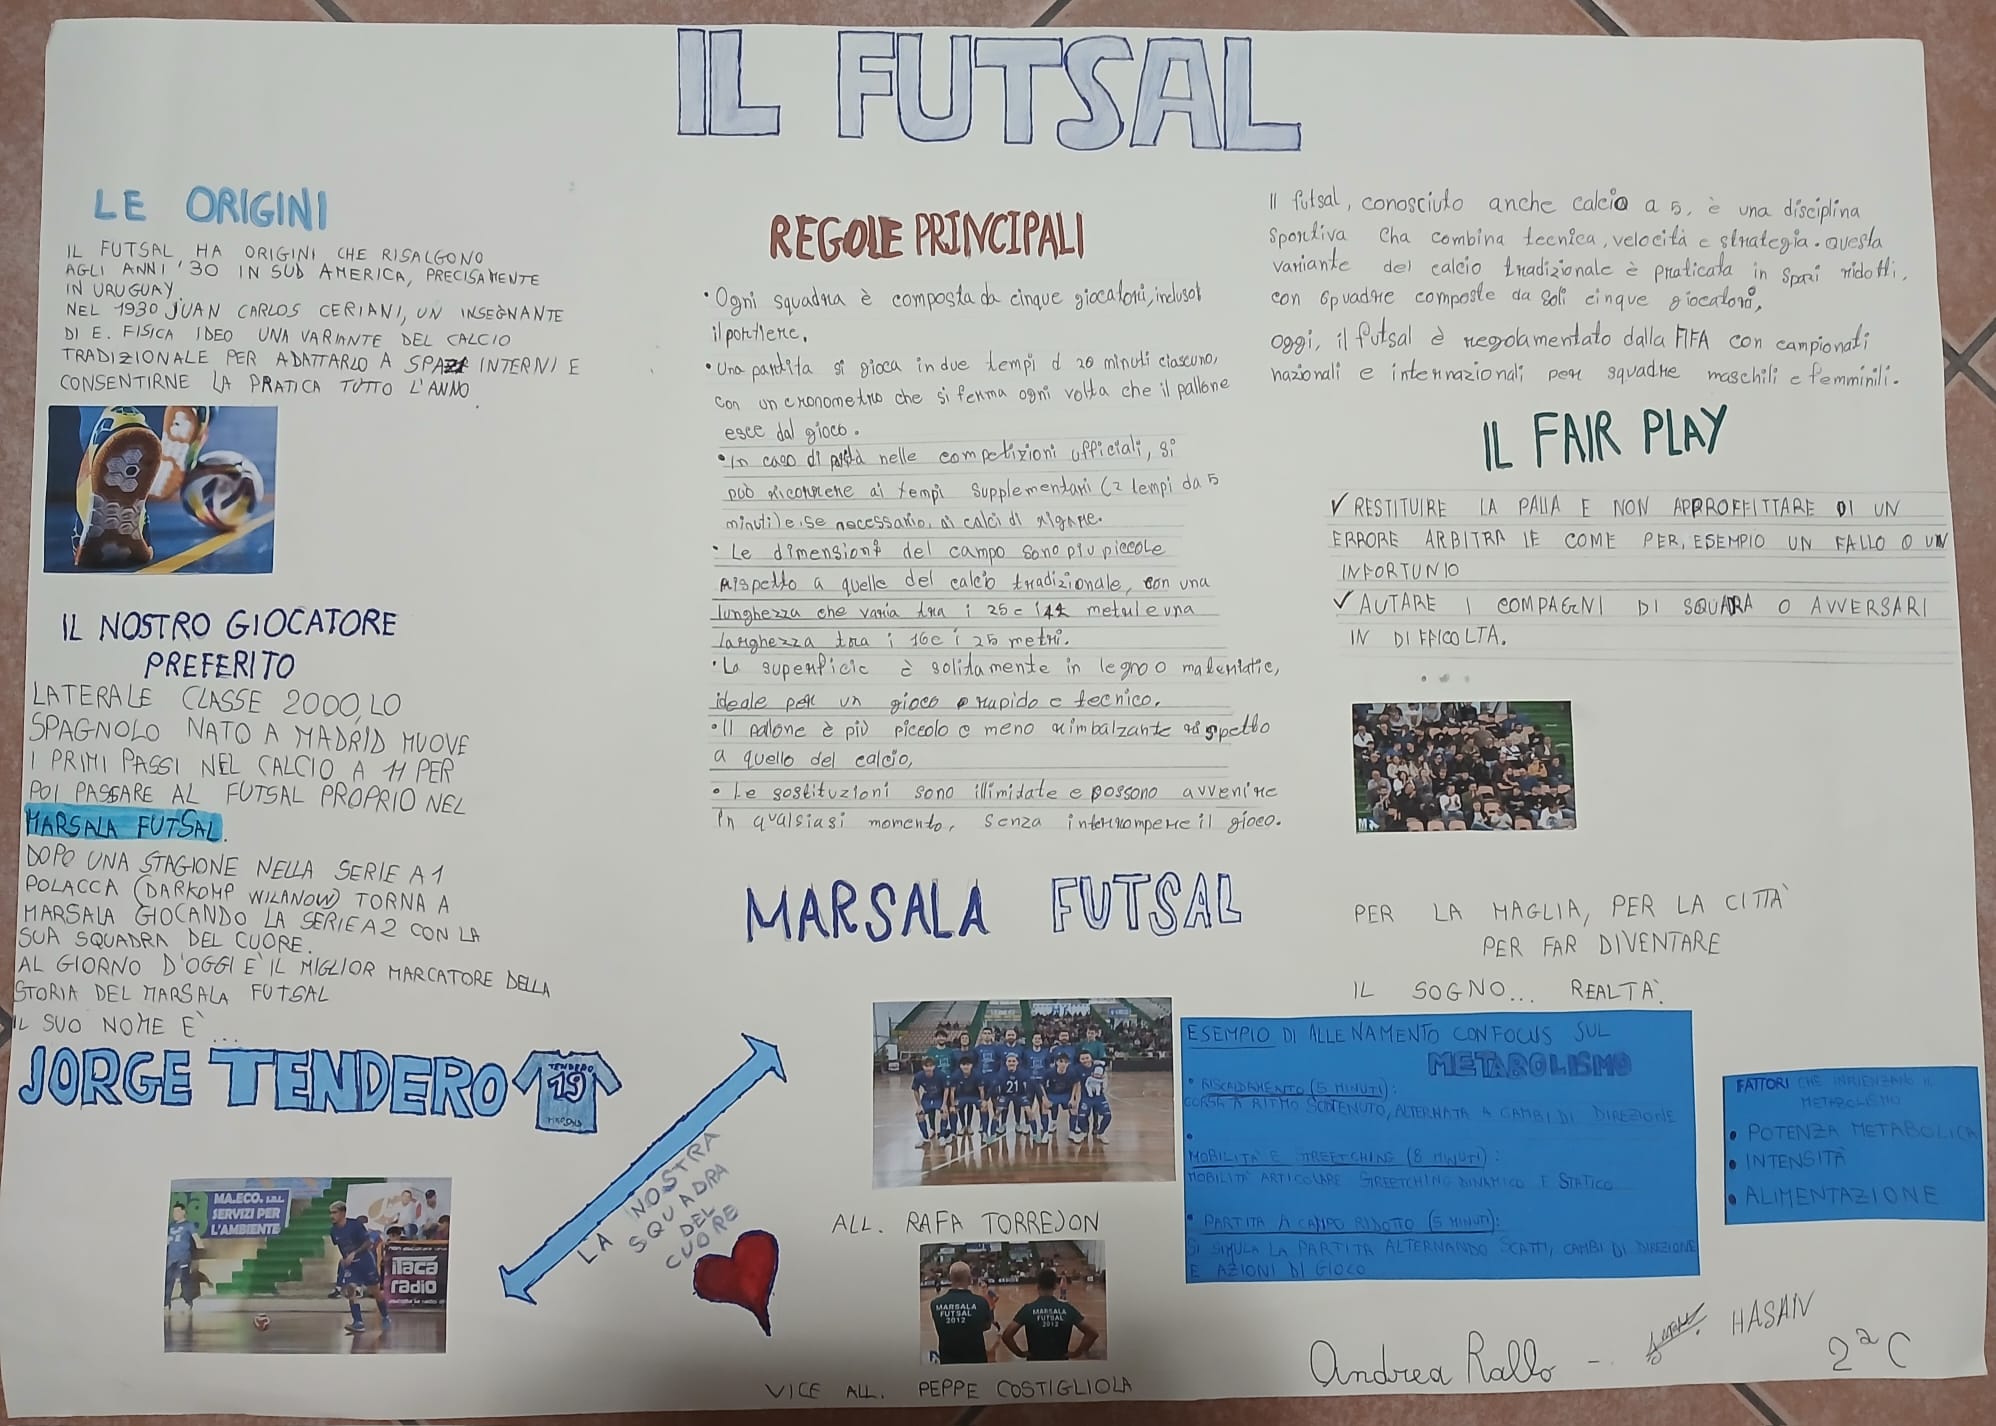 IL FUTSAL
LE ORIGINI
IL FUTSAL HA ORIGINI CHE RISALGONO
AGLI ANNI '30 IN SUD AMERICA, PRECISAMENTE
IN URUGUAY.
NEL 1930 JUAN CARLOS CERIANI, UN INSEGNANTE
DI E. FISICA IDEO UNA VARIANTE DEL CALCIO
TRADIZIONALE PER ADATTARLO A SPAZI INTERNI E
CONSENTIRNE LA PRATICA TUTTO L'ANNO.
IL NOSTRO GIOCATORE
PREFERITO
LATERALE CLASSE 2000, LO
SPAGNOLO NATO A MADRID MUOVE
I PRIMI PASSI NEL CALCIO A 11 PER
POI PASSARE AL FUTSAL PROPRIO NEL
MARSALA FUTSAL.
DOPO UNA STAGIONE NELLA SERIE A1
POLACCA (DARKOMP WILANOW) TORNA A
MARSALA GIOCANDO LA SERIE A2 CON LA
SUA SQUADRA DEL CUORE.
AL GIORNO D'OGGI E' IL MIGLIOR MARCATORE DELLA
STORIA DEL MARSALA FUTSAL
IL SUO NOME E' ...
JORGE TENDERO
TENDERO
19
MA.ECO. s.r.l.
SERVIZI PER
L'AMBIENTE
itaca
radio
REGOLE PRINCIPALI
• Ogni squadra è composta da cinque giocatori, inclusoi
il portiere.
• Una partita si gioca in due tempi d 20 minuti ciascuno,
con un cronometro che si ferma ogni volta che il pallone
esce dal gioco.
• In caso di nelle competizioni ufficiali, si
può ricorrere ai tempi supplementari (2 tempi da 5
minuti) e, se necessario, ai calci di rigore.
• Le dimensioni del campo sono piu piccole
rispetto a quelle del calcio tradizionale, con una
lunghezza che varia tra i 25 e i 42 metri e una
larghezza tra i 16 e i 25 metri.
• La superficie è solitamente in legno o
ideale per un gioco rapido e tecnico.
• Il palone è più piccolo e meno rimbalzante rispetto
a quello del calcio,
• Le sostituzioni sono illimitate e possono avvenire
in qualsiasi momento, senza interrompere il gioco.
MARSALA FUTSAL
21
LA NOSTRA
SQUADRA
DEL
CUORE
ALL. RAFA TORREJON
MARSALA
FUTSAL
2012
MARSALA
FUTSAL
2012
VICE ALL. PEPPE COSTIGLIOLA
Il futsal, conosciuto anche calcio a 5, è una disciplina
sportiva cha combina tecnica, velocità e strategia. Questa
variante del calcio tradizionale è praticata in spazi ridotti,
con squadre composte da soli cinque giocatori,
oggi, il futsal è regolamentato dalla FIFA con campionati
nazionali e internazionali per squadre maschili e femminili.
IL FAIR PLAY
✓ RESTITUIRE LA PALLA E NON APPROFFITTARE DI UN
ERRORE ARBITRALE COME PER, ESEMPIO UN FALLO O UN
INFORTUNIO
✓ AUTARE I COMPAGNI DI SQUADRA O AVVERSARI
IN DIFFICOLTA.
PER LA MAGLIA, PER LA CITTÀ
PER FAR DIVENTARE
IL SOGNO... REALTÀ.
ESEMPIO DI ALLENAMENTO CON FOCUS SUL
METABOLISMO
• RISCALDAMENTO (5 MINUTI):
CORSA A RITMO SOSTENUTO, ALTERNATA A CAMBI DI DIREZIONE
•
MOBILITÀ E STREETCHING (8 MINUTI):
MOBILITÀ ARTICOLARE STREETCHING DINAMICO E STATICO
• PARTITA A CAMPO RIDOTTO (5 MINUTI):
SI SIMULA LA PARTITA ALTERNANDO SCATTI, CAMBI DI DIREZIONE
E AZIONI DI GIOCO
FATTORI CHE IL
METABOLISMO
• POTENZA METABOLICA
• INTENSITÀ
• ALIMENTAZIONE
Andrea Rallo - HASAN
2ªC